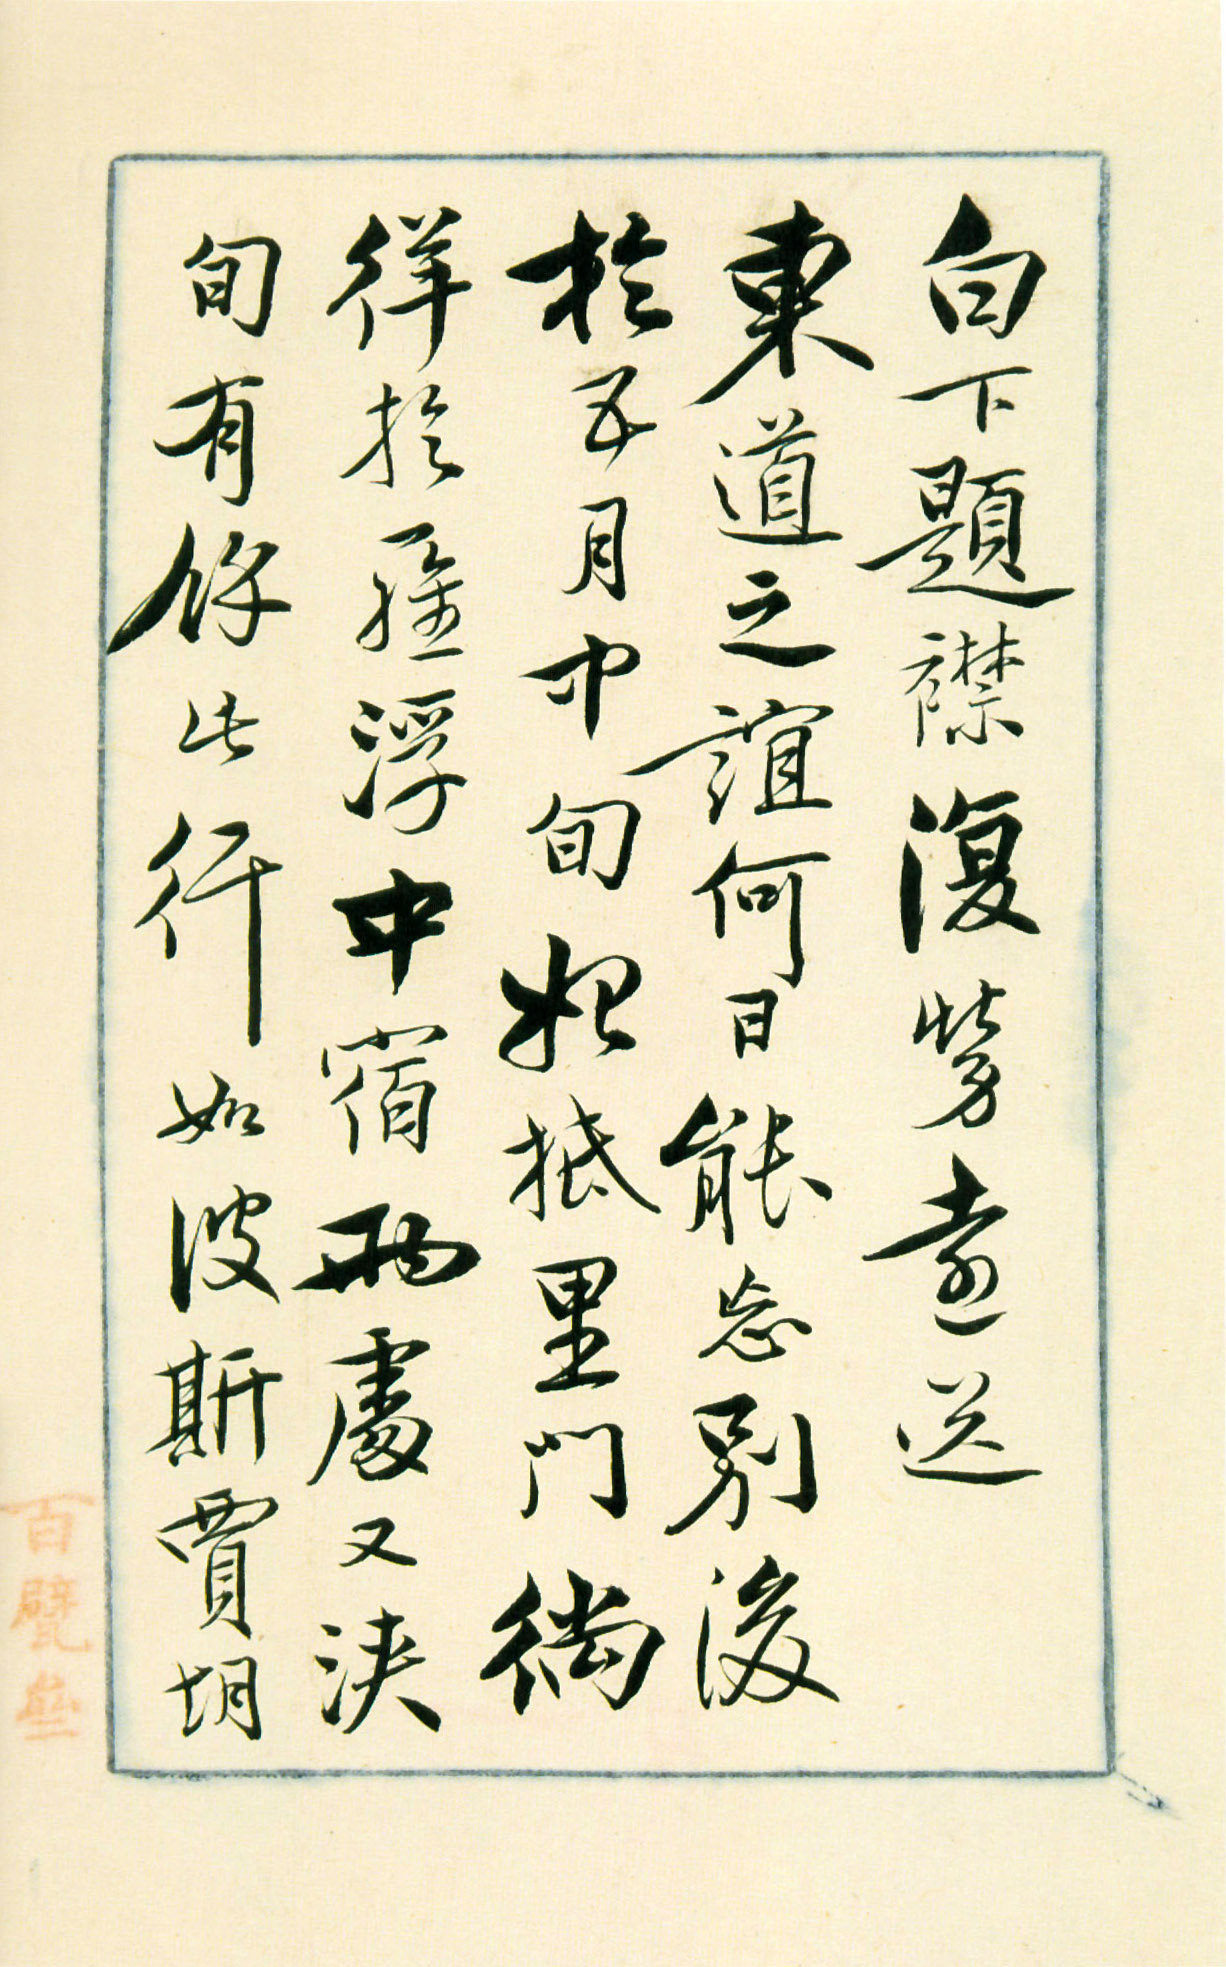 白下題襟復勞遠送
東道之誼何日能忘別後
於五月中旬始抵里門徜
徉於羅浮中宿兩處又浹
旬有餘此行如波斯賈胡
百甓齋